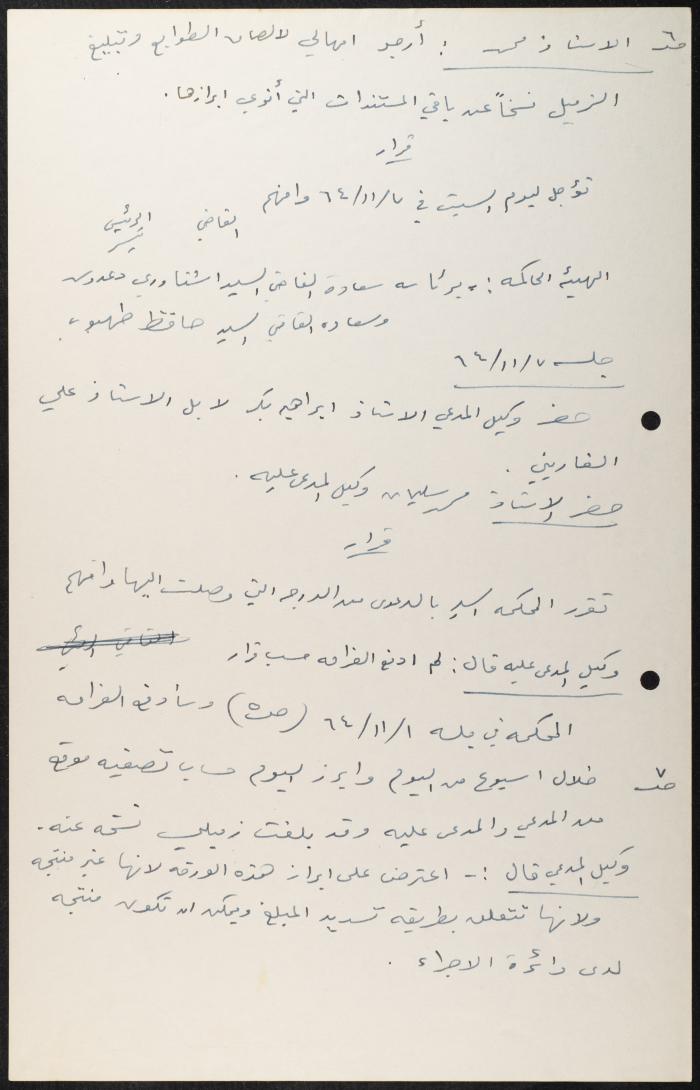 الاستاذ محمد : أرجو امهالي لالصاق الطوابع وتبليغ
الزميل نسخاً عن باقي المستندات التي أنوي ابرازها .
قرار
تؤجل ليوم السبت في ٦٤/١١/٧ وافهم
القاضي الرئيس
الهيئة الحاكمة : برئاسة سعادة القاضي السيد
وسعادة القاضي السيد حافظ طهبوب
جلسة ٦٤/١١/٧
حضر وكيل المدعي الاستاذ ابراهيم بكر لا بل الاستاذ علي
الغاريني .
حضر الاستاذ محمد سليمان وكيل المدعى عليه .
قرار
تقرر المحكمة السير بالدعوى من الدرجة التي وصلت اليها وافهم
وكيل المدعى عليه قال : لم ادفع الغرامة حسب قرار
المحكمة في جلسة ٦٤/١١/١ (ص٥) وسأدفع الغرامة
خلال اسبوع من اليوم وابرز اليوم حساب تصفية موقع
من المدعي والمدعى عليه وقد بلغت زميلي نسخة عنه .
وكيل المدعي قال :- اعترض على ابراز هذه الورقة لانها غير منتجة
ولانها تتعلق بطريقة تسديد المبلغ ويمكن ان تكون منتجة
لدى دائرة الاجراء .